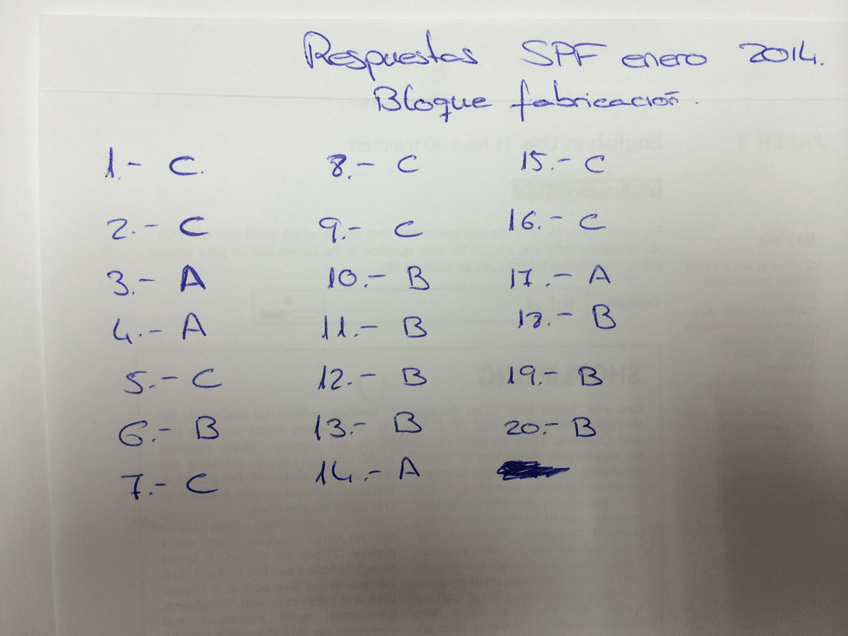 Respuestas SPF enero 2014.
Bloque fabricación.
1.- C.
2.- C
3.- A
4.- A
5.- C
6.- B
7.- C
8.- C
9.- C
10.- B
11.- B
12.- B
13.- B
14.- A
15.- C
16.- C
17.- A
18.- B
19.- B
20.- B